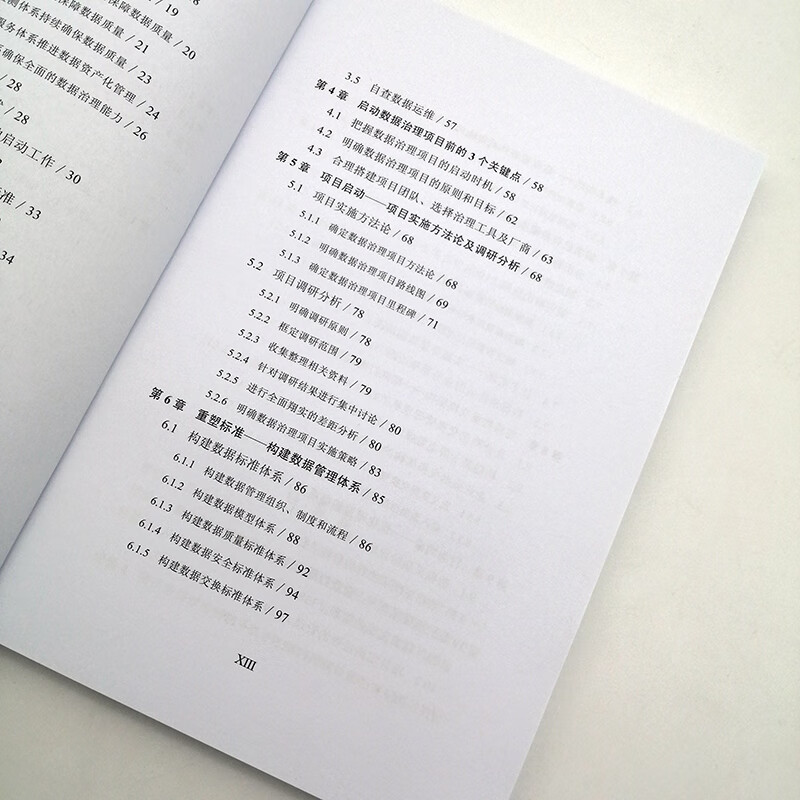 8
19
保障数据质量 / 20
测体系持续确保数据质量 / 21
服务体系推进数据资产化管理 / 23
确保全面的数据治理能力 / 24
/ 26
28
/ 28
启动工作 / 30
准 / 33
34
3.5 自查数据运维 / 57
第 4 章 启动数据治理项目前的 3 个关键点 / 58
4.1 把握数据治理项目的启动时机 / 58
4.2 明确数据治理项目的原则和目标 / 62
4.3 合理搭建项目团队、选择治理工具及厂商 / 63
第 5 章 项目启动——项目实施方法论及调研分析 / 68
5.1 项目实施方法论 / 68
5.1.1 确定数据治理项目方法论 / 68
5.1.2 明确数据治理项目路线图 / 69
5.1.3 确定数据治理项目里程碑 / 71
5.2 项目调研分析 / 78
5.2.1 明确调研原则 / 78
5.2.2 框定调研范围 / 79
5.2.3 收集整理相关资料 / 79
5.2.4 针对调研结果进行集中讨论 / 80
5.2.5 进行全面翔实的差距分析 / 80
5.2.6 明确数据治理项目实施策略 / 83
第 6 章 重塑标准——构建数据管理体系 / 85
6.1 构建数据标准体系 / 86
6.1.1 构建数据管理组织、制度和流程 / 86
6.1.2 构建数据模型体系 / 88
6.1.3 构建数据质量标准体系 / 92
6.1.4 构建数据安全标准体系 / 94
6.1.5 构建数据交换标准体系 / 97
XIII